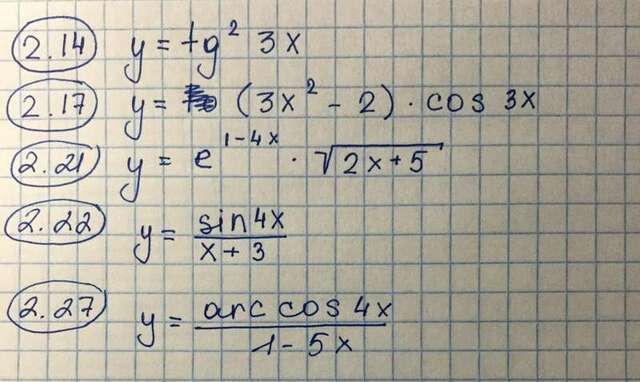 2.14 y = tg² 3x
2.17 y = (3x² - 2) · cos 3x
2.21 y = e^(1-4x) · √(2x+5)
2.22 y = sin4x / x + 3
2.27 y = arc cos 4x / 1 - 5x